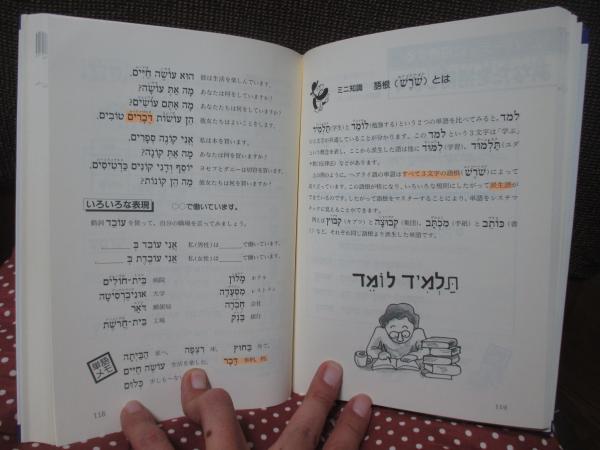 הוא עושה חיים. 彼は生活を楽しんでいます。
מה את עושה? あなたは何をしていますか?
מה אתם עושים? あなたたちは何をしていますか?
הן עושות דברים טובים. 彼女たちはよいことをします。
אני קונה ספרים. 私は本を買います。
מה את קונה? あなたは何を買いますか?
יוסף ודני קונים כרטיסים. ヨセフとダニーは切符を買います。
מה הן קונות? 彼女たちは何を買いますか?
いろいろな表現 〇〇で働いています。
動詞 עובד を使って、自分の職場を言ってみましょう。
אני עובד ב 私(男性)は______で働いています。
אני עובדת ב 私(女性)は______で働いています。
בית-חולים 病院 מלון ホテル
אוניברסיטה 大学 מסעדה レストラン
דואר 郵便局 חברה 会社
בית-חרשת 工場 בנק 銀行
単語メモ
הביתה 家へ רצפה 床 בחוץ 外で
עושה חיים 生活を楽しむ דבר 事柄, 物
כלום
118
ミニ知識 語根 (שורש) とは
תלמיד (学生) と לומד (勉強する) という2つの単語を比べてみると、למד
という3文字が共通していることが分かります。この למד という3文字は「学ぶ」
という概念を表し、ここから派生した語は他に לימוד (学習)、תלמוד (ユダ
ヤ教の伝承法) などがあります。
上の例によって、ヘブライ語の単語はすべて3文字の語根 (שורש) によって
成り立っています。この語根が核になり、いろいろな規則にしたがって派生語が
できているのです。したがって語根をマスターすることにより、単語をシステマ
チックに覚えることができます。
例えば קיבוץ (キブツ) と קבוצה (集団)、מכתב (手紙) と כותב (書
く) など、それぞれ同じ語根より派生した単語です。
תלמיד לומד
119